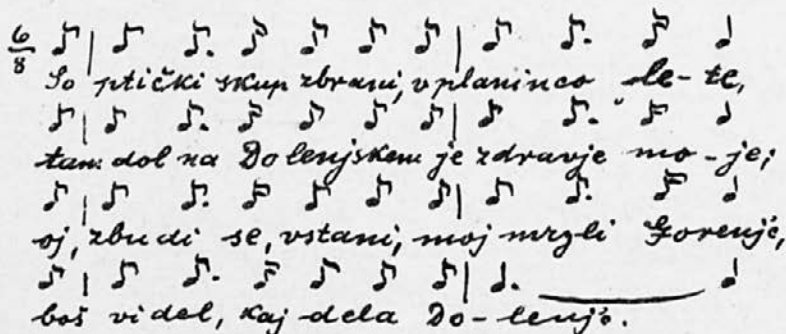 6/8
So ptički skup zbrani, v planinco le-te,
tam dol na Dolenjskem je zdravje mo-je;
oj, zbudi se, vstani, moj mrzli Gorenjc,
boš videl, kaj dela Do-lenjc.